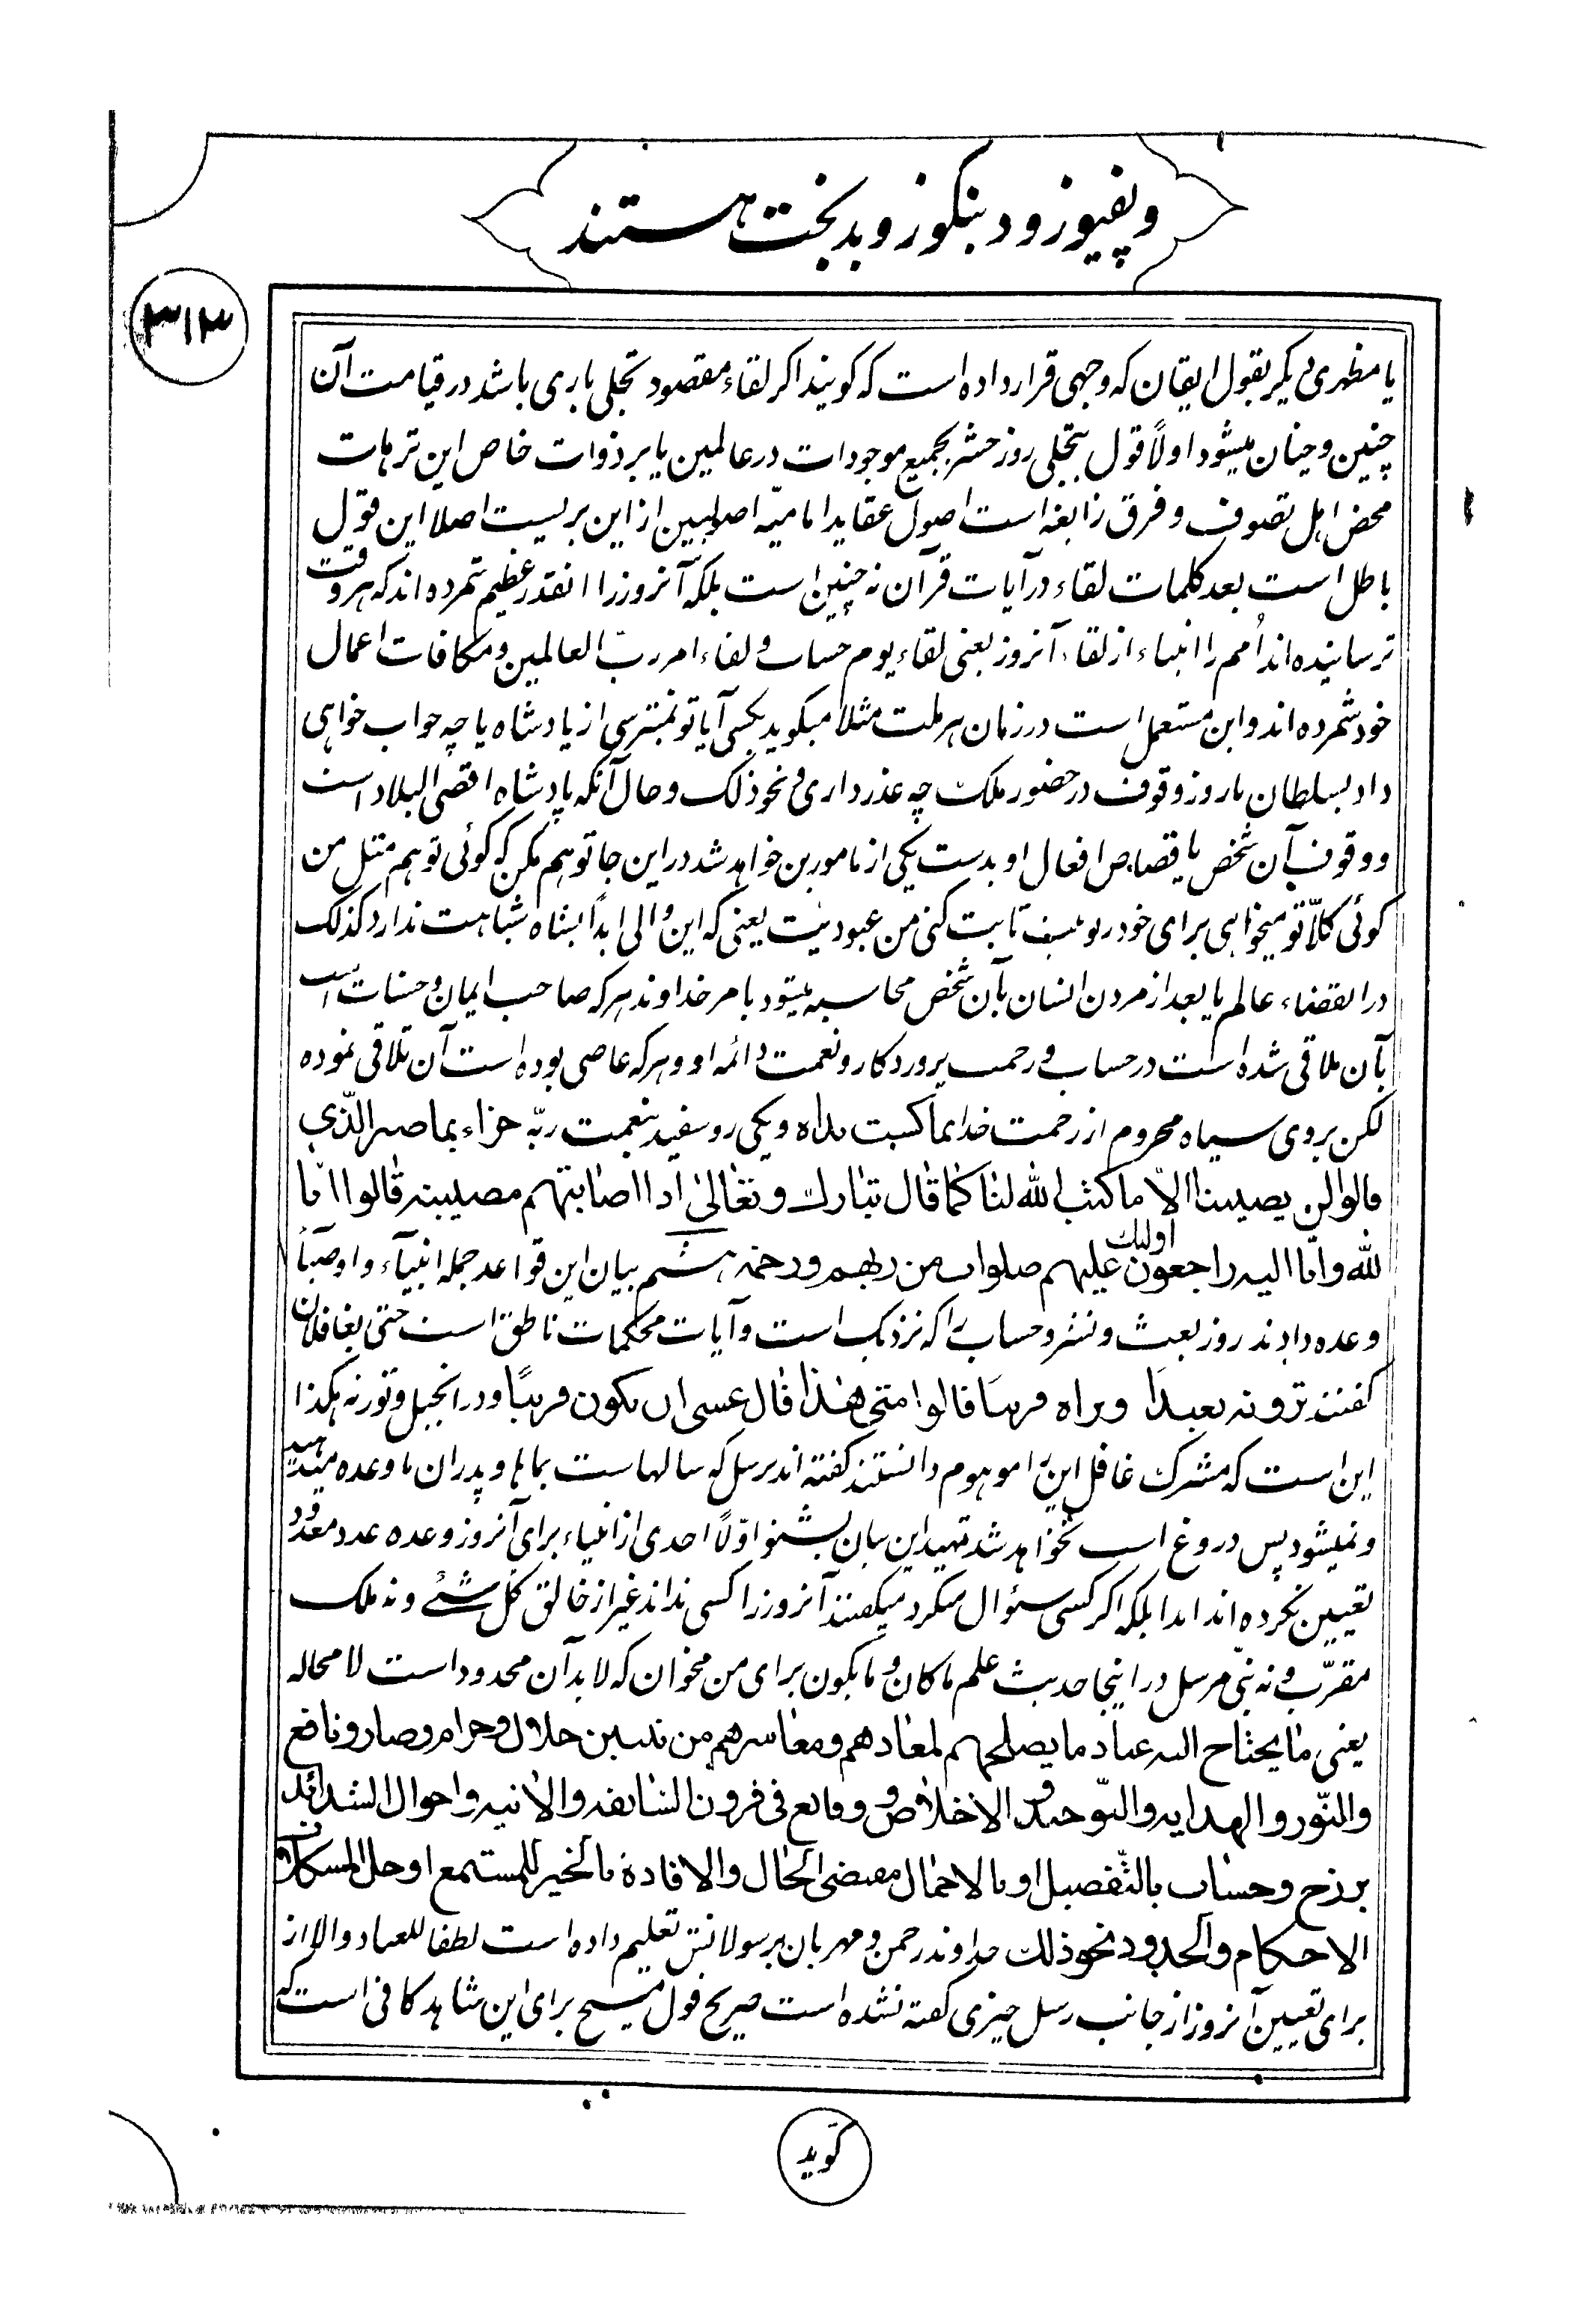 و پفیوز و دبنگوز و بدبخت هستند
۳۱۳
یا مظهری دیگر بقول ایقان که وجهی قرار داده است که کویند اکر لقاء مقصود تجلی باری باشد در قیامت آن
چنین و چنان میشود اولاً قول بتجلی روز حشر بجمیع موجودات در عالمین یا بر ذوات خاص این ترهات
محض اهل تصوف و فرق زایغه است اصول عقاید امامیّه اصولیین از این بریست اصلا این قول
باطل است بعد کلمات لقاء در آیات قرآن نه چنین است بلکه آنروز را انقدر عظیم شمرده اند که هر وقت
ترسانیده اند اُمم را انبیاء از لقاء آنروز یعنی لقاء یوم حساب و لقاء امر ربّ العالمین و مکافات اعمال
خود شمرده اند و این مستعمل است در زمان هر ملت مثلا میکوید بکسی آیا تو نمیترسی از پادشاه یا چه جواب خواهی
داد بسلطان یا روز وقوف در حضور ملک چه عذر داری و نحو ذلک و حال آنکه پادشاه اقصی البلاد است
و وقوف آن شخص یا قصاص افعال او بدست یکی از مامورین خواهد شد در این جا توهم مکن که کوئی تو هم مثل من
کوئی کلاّ تو میخواهی برای خود ربوبیت ثابت کنی من عبودیت یعنی که این والی ابداً بشاه شباهت ندارد کذلک
در انقضاء عالم یا بعد از مردن انسان بآن شخص محاسبه میشود بامر خداوند هر که صاحب ایمان و حسنات است
بآن ملاقی شده است در حساب و رحمت پروردکار و نعمت دائمه او و هر که عاصی بوده است آن تلاقی نموده
لکن بروی سیاه محروم از رحمت خدا بما کسبت یداه و یکی رو سفید بنعمت ربّه جزاء بما صبر الّذی
قالوا لن یصیبنا الاّ ما کتب الله لنا کما قال تبارک و تعالی اذا اصابتهم مصیبة قالوا انّا
لله و انّا الیه راجعون اولئک علیهم صلوات من ربهم و رحمة هشتم بیان این قواعد جمله انبیاء و اوصیاء
وعده دادند روز بعث و نشر و حساب را که نزدیک است و آیات محکمات ناطق است حتی بغافلان
کفتند ترونه بعیداً و نراه قریبا قالوا متی هذا قال عسی ان یکون قریباً و در انجیل و توریة هکذا
این است که مشرک غافل این را موهوم دانستند کفته اند برسل که سالهاست بماها و پدران ما وعده میدهید
و نمیشود پس دروغ است نخواهد شد تمهید این بیان بشنو اوّلاً احدی از انبیاء برای آنروز وعده عدد معدود
تعیین نکرده اند ابدا بلکه اکر کسی سئوال میکرد میکفتند آنروز را کسی نداند غیر از خالق کل شئ و نه ملک
مقرّب و نه نبّی مرسل در اینجا حدیث علم ما کان و ما یکون برای من مخوان که لابد آن محدود است لا محاله
یعنی ما یحتاج الیه عباد ما یصلحهم لمعادهم و معاشرهم من تبیین حلال و حرام و ضار و نافع
والنّور و الهدایه و التوحید و الاخلاص و وقایع فی قرون السّابقه والاتیه و احوال الشدائد
برزخ و حساب بالتّفصیل او بالاجمال مقتضی الحال والافادة بالخیر للمستمع او حل المشکلات
الاحکام والحدود و نحو ذلک خداوند رحمن و مهربان برسولانش تعلیم داده است لطفا للعباد و الا از
برای تعیین آنروز از جانب رسل چیزی کفته نشده است صریح قول مسیح برای این شاهد کافی است که
کوید